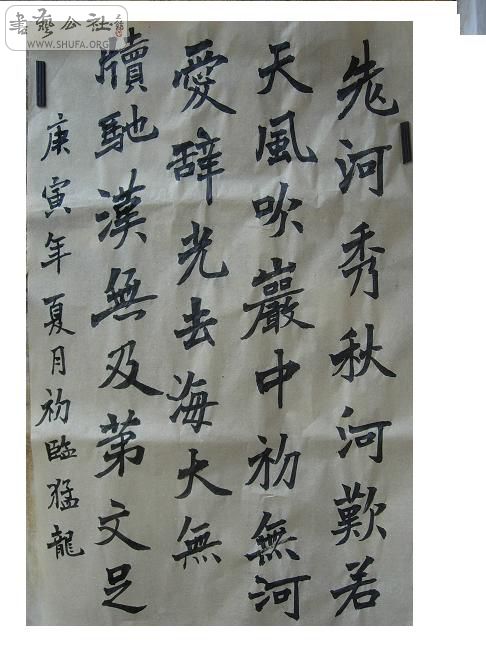 書藝公社
WWW.SHUFA.ORG
河秀秋河歎若
天風吹巖中初無河
愛辭光去海大無
牘馳漢無及第文足
庚寅年夏月初臨猛龍